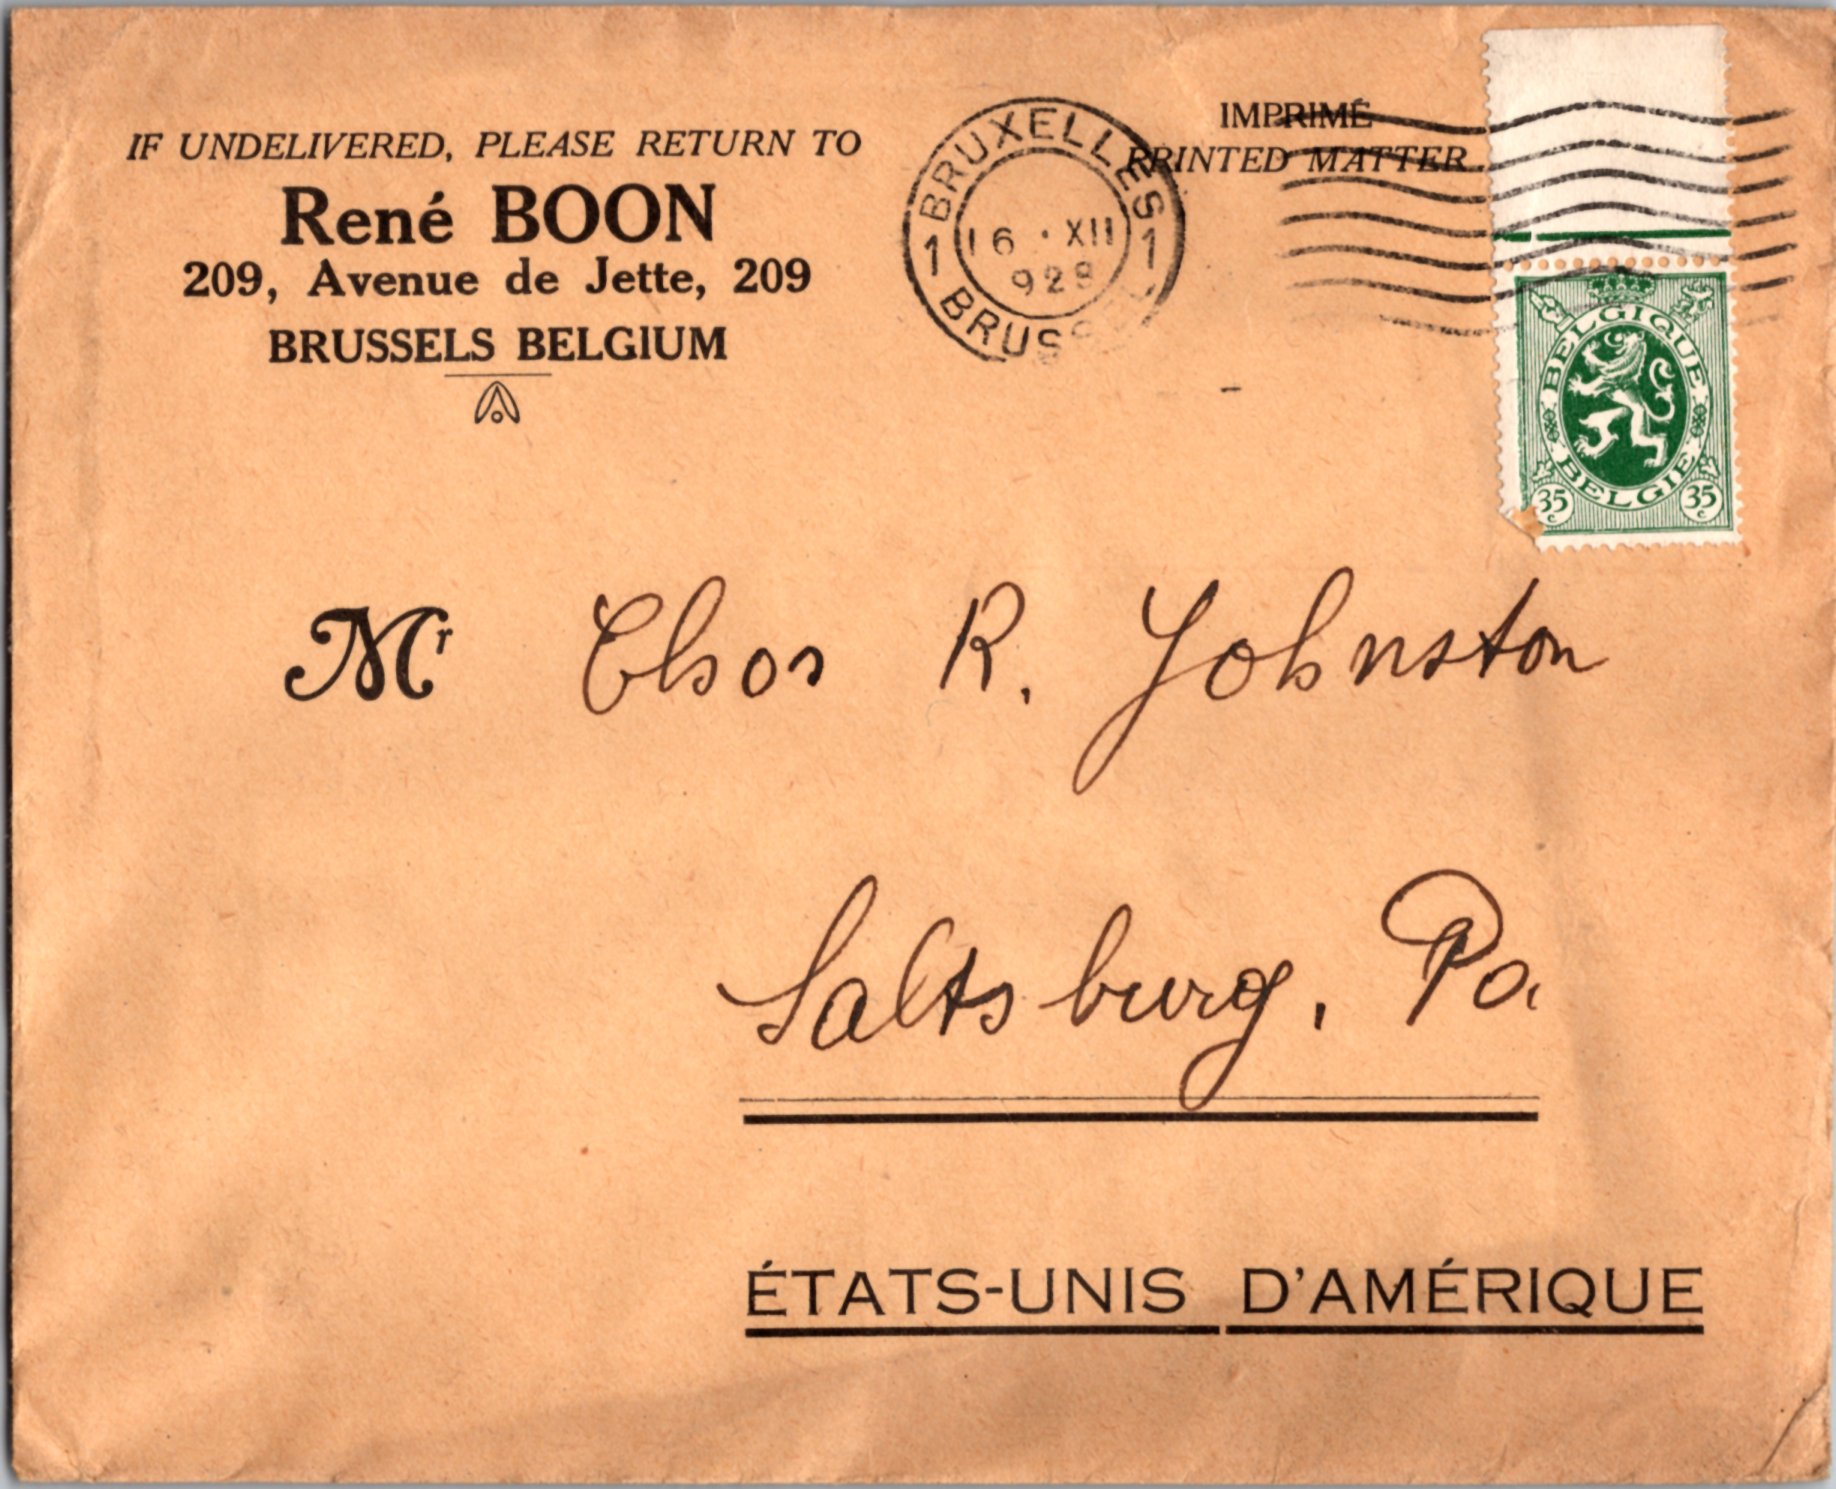 IF UNDELIVERED, PLEASE RETURN TO
René BOON
209, Avenue de Jette, 209
BRUSSELS BELGIUM
BRUXELLES
1 16 · XII 1
929
BRUSSEL
IMPRIMÉ
PRINTED MATTER.
BELGIQUE
BELGIE
35 c 35 c
Mr Chas R. Johnston
Saltsburg, Pa.
ÉTATS-UNIS D'AMÉRIQUE